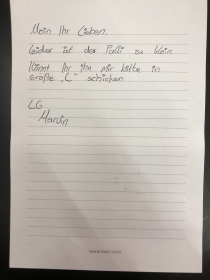 Moin Ihr Lieben,
Leider ist der Pulli zu klein
Könnt Ihr ihn mir bitte in
Größe „L" schicken
LG
Marvin